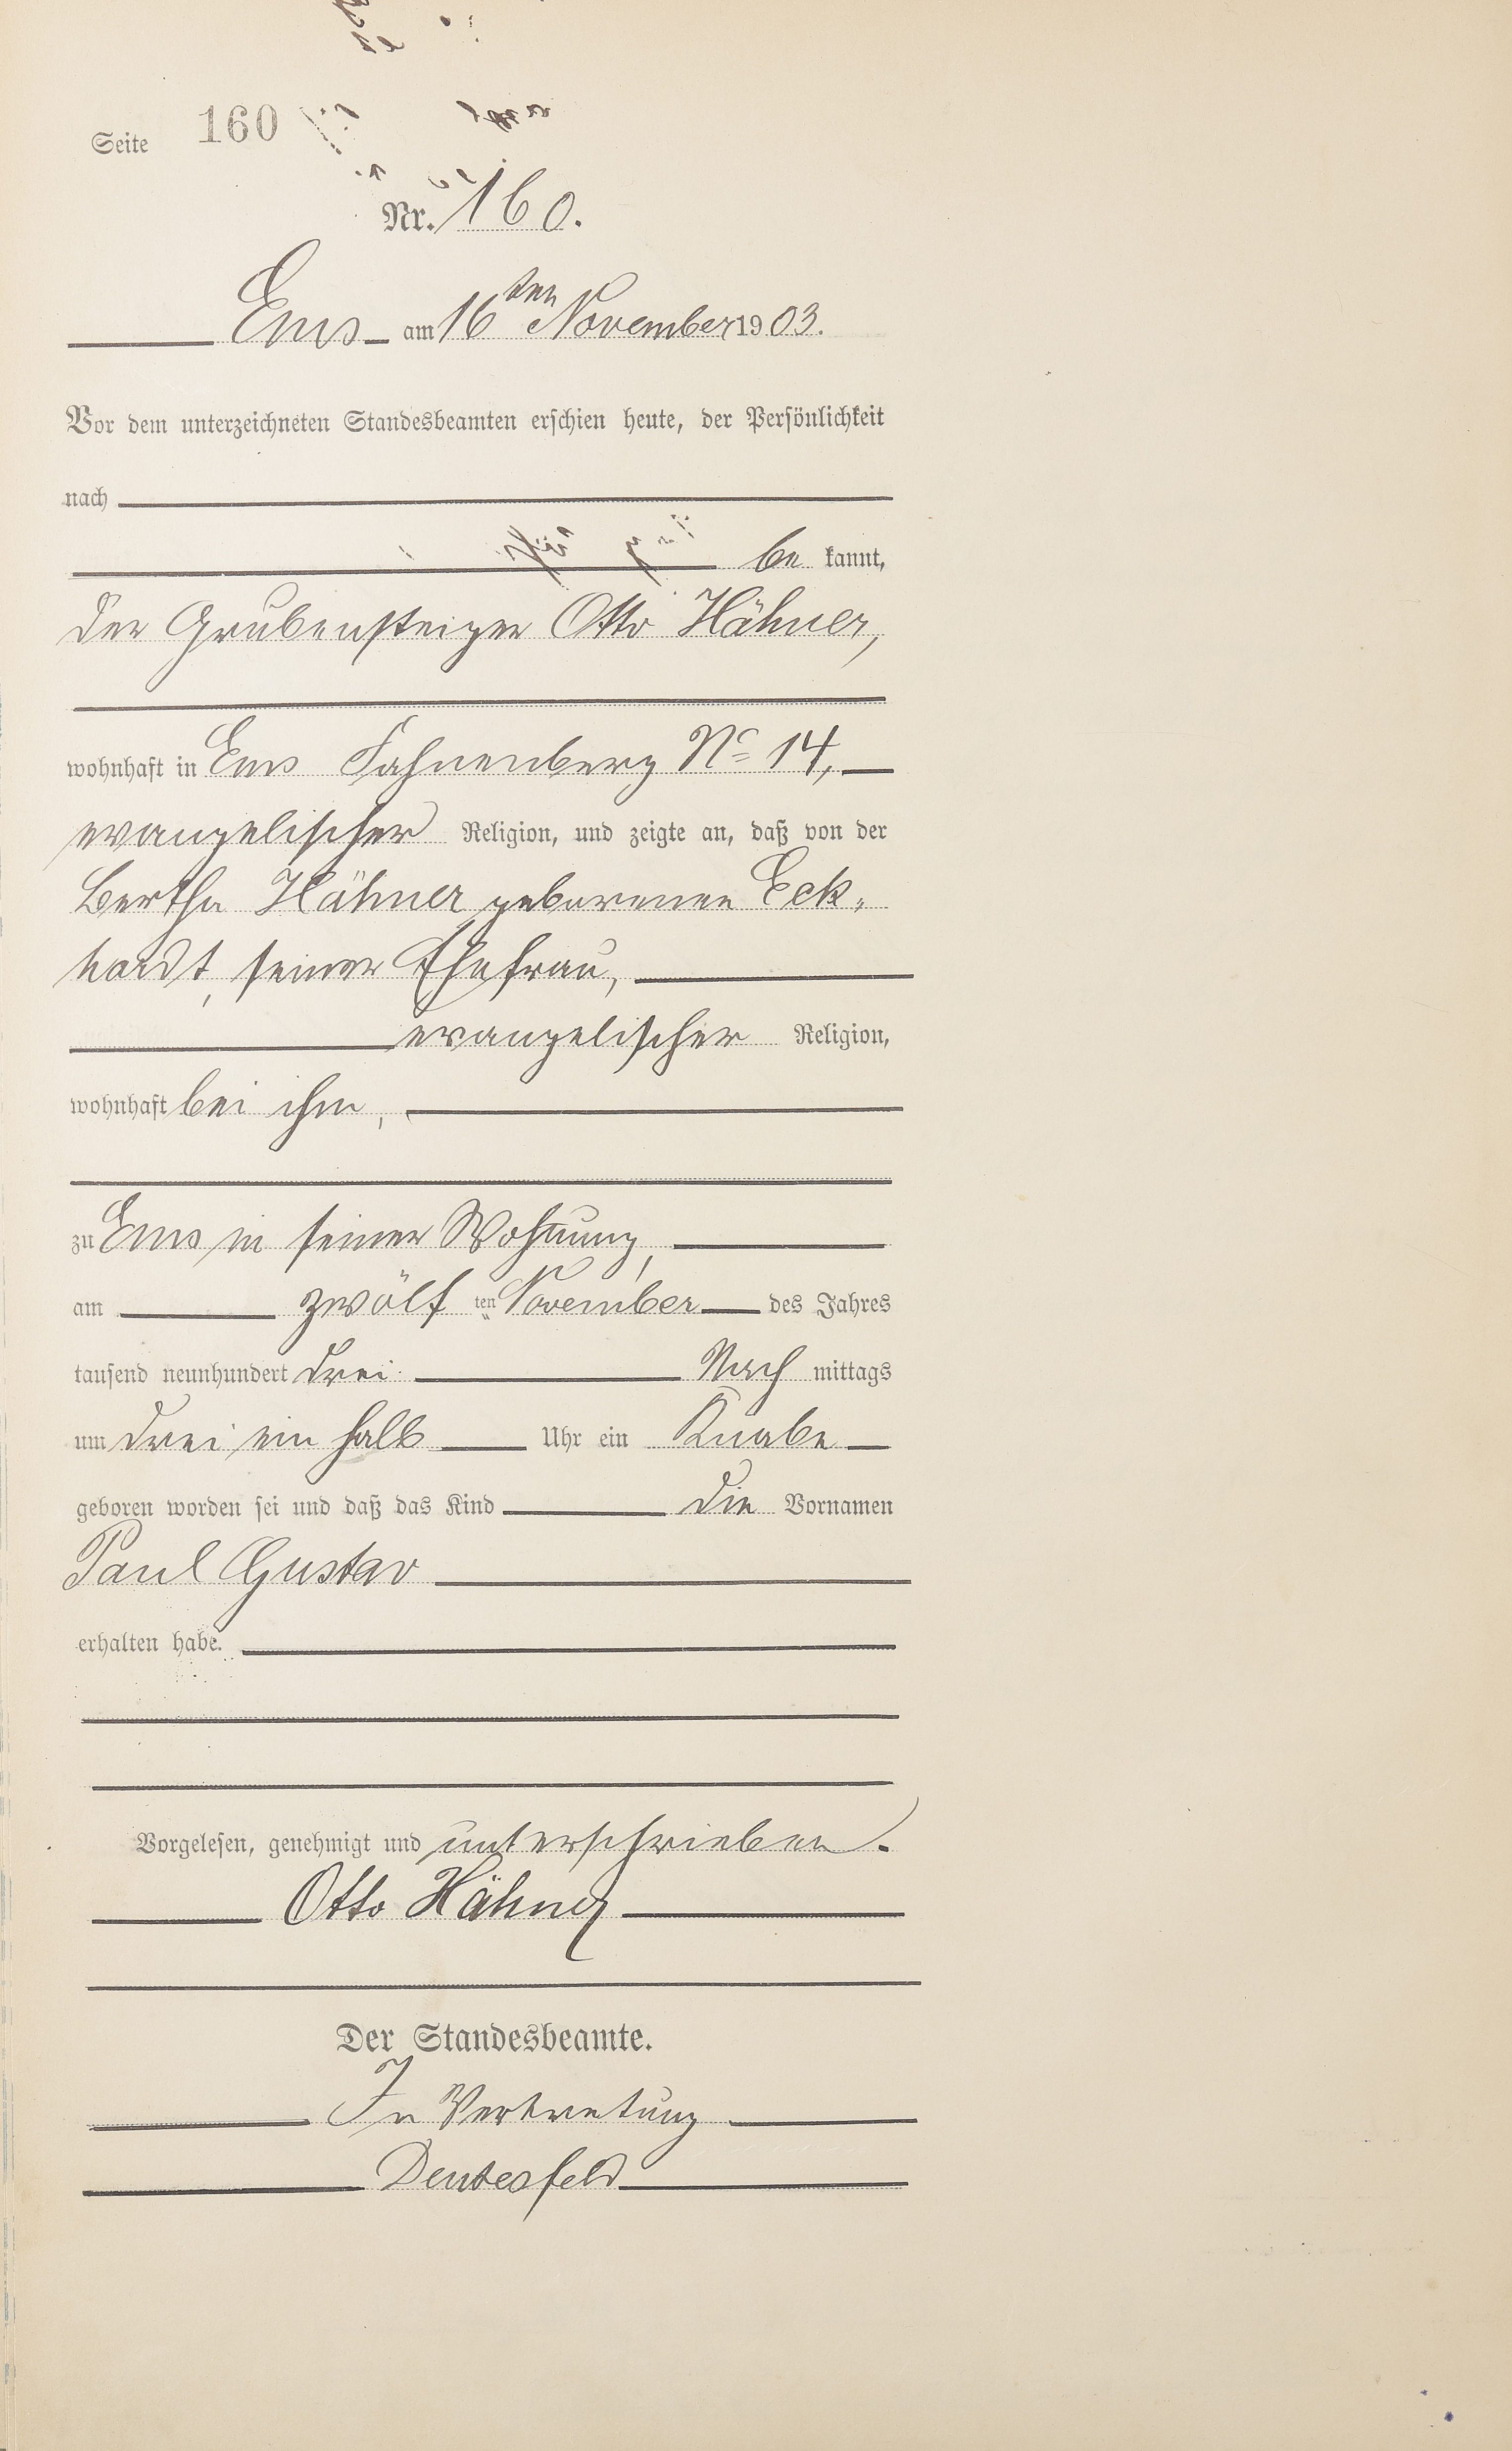 Seite 160
Nr. 160.
Ems am 16ten November 1903.
Vor dem unterzeichneten Standesbeamten erschien heute, der Persönlichkeit
nach
be kannt,
der Grubensteiger Otto Hähner,
wohnhaft in Ems Fahnenberg No 14,
evangelischer Religion, und zeigte an, daß von der
Bertha Hähner geborenen Eck-
hardt, seiner Ehefrau,
evangelischer Religion,
wohnhaft bei ihm,
zu Ems in seiner Wohnung,
am zwölf ten November des Jahres
tausend neunhundert drei Nach mittags
um drei ein halb Uhr ein Knabe
geboren worden sei und daß das Kind die Vornamen
Paul Gustav
erhalten habe.
Vorgelesen, genehmigt und unterschrieben.
Otto Hähner
Der Standesbeamte.
In Vertretung